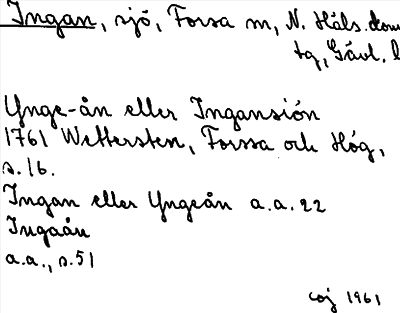 Ingan, sjö, Forsa m, N. Häls. dom
tg, Gävl. l
Ynge-ån eller Ingansión
1761 Wettersten, Forssa och Hög,
s. 16.
Ingan eller Yngeån a.a. 22
Ingaån
a.a., s. 51
coj 1961